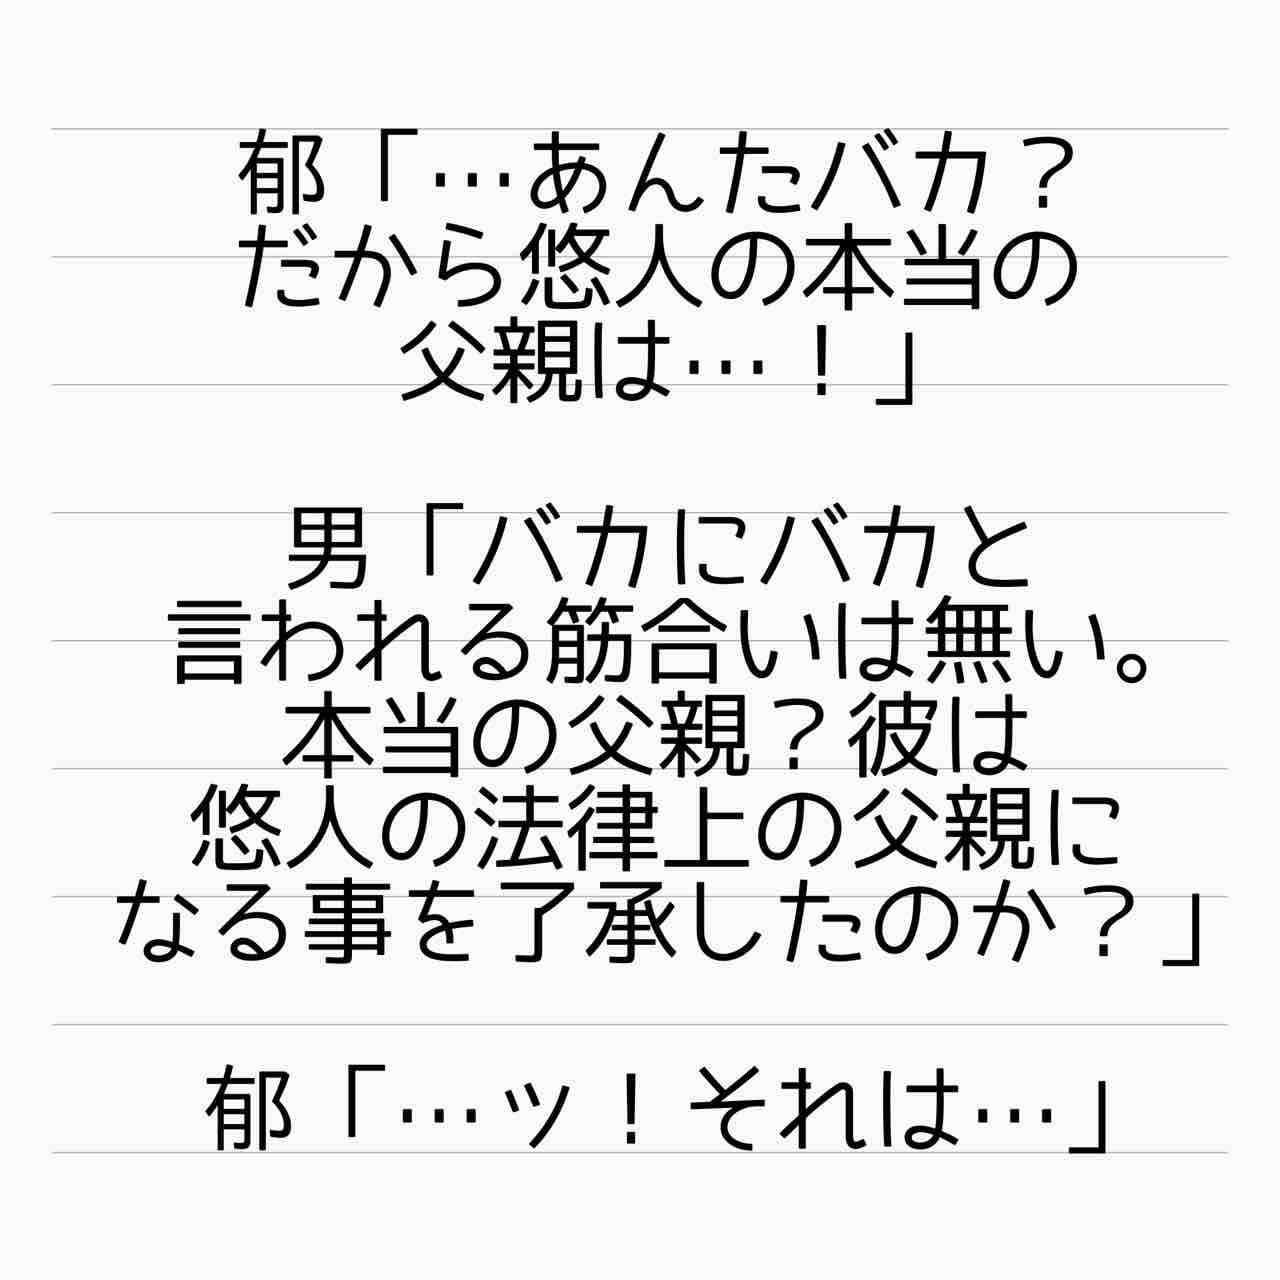 郁「…あんたバカ?
だから悠人の本当の
父親は…!」
男「バカにバカと
言われる筋合いは無い。
本当の父親?彼は
悠人の法律上の父親に
なる事を了承したのか?」
郁「…ッ!それは…」